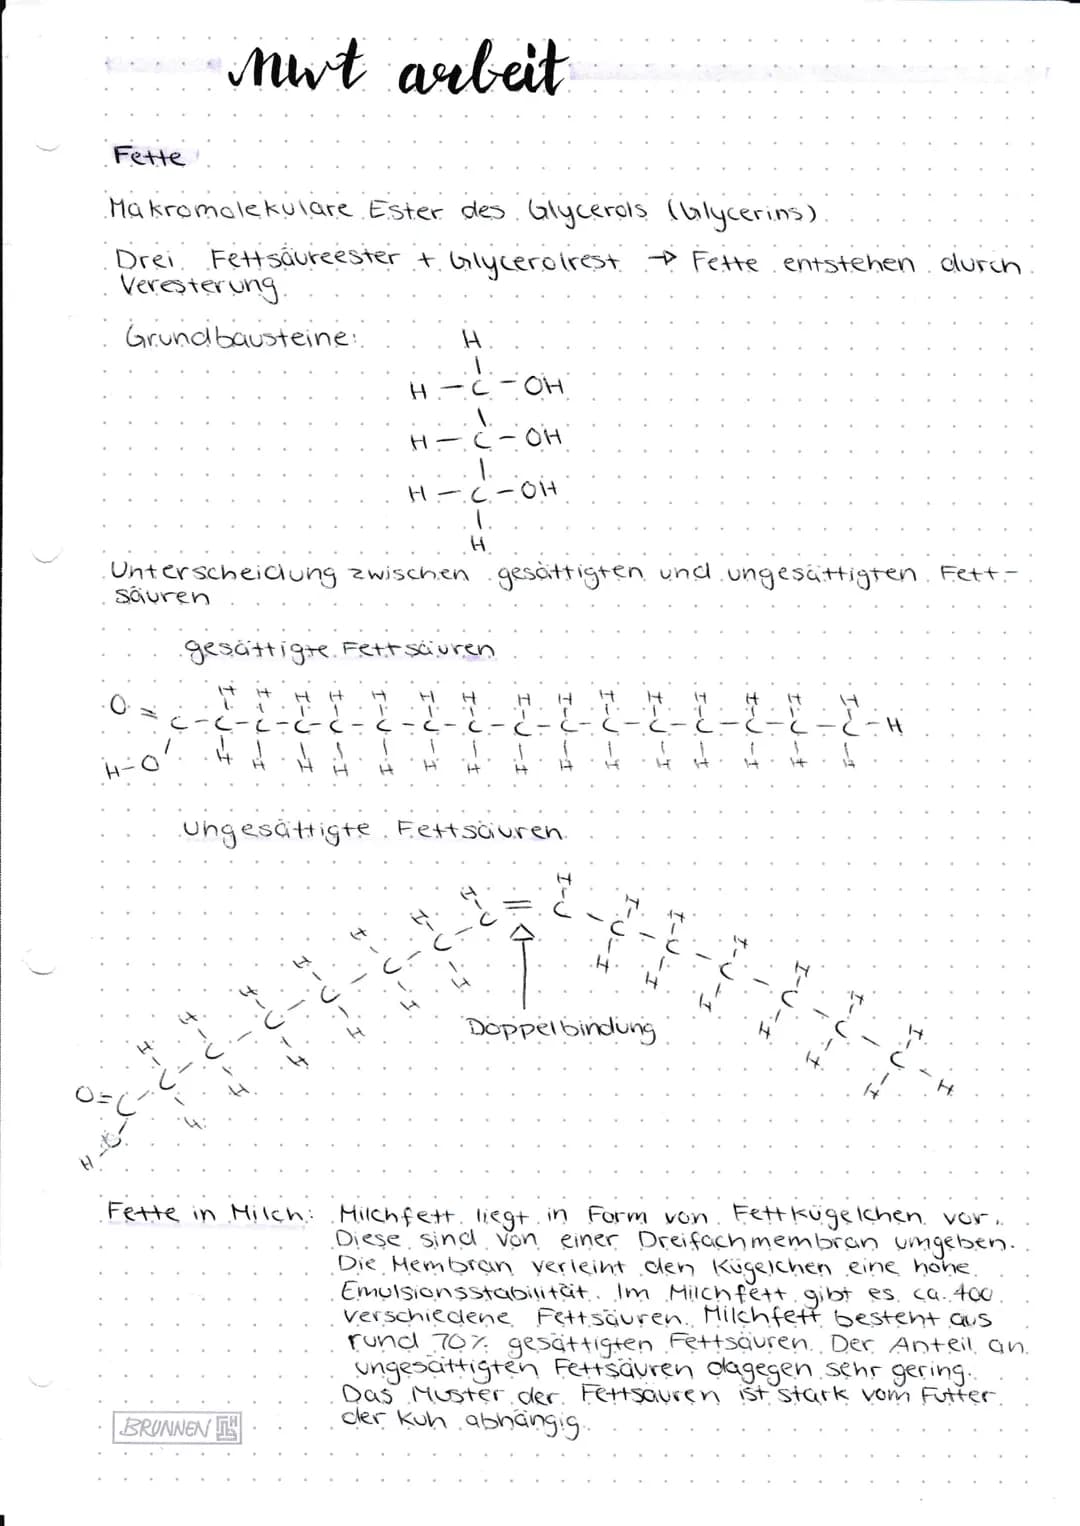 Nwt arbeit
Fette
Makromolekulare Ester des Glycerols (Glycerins)
Drei Fettsäureester + Glycerolrest → Fette entstehen durch
Veresterung
Grundbausteine:
H
H - C - OH
H - C - OH
H - C - OH
H
Unterscheidung zwischen gesättigten und ungesättigten Fett-
säuren
gesättigte Fettsäuren
H H H H H H H H H H H H H H H
O = C-C-C-C-C-C-C-C-C-C-C-C-C-C-C-C-H
H-O H H H H H H H H H H H H H H H
ungesättigte Fettsäuren
Doppelbindung
O=C
H
Fette in Milch: Milchfett liegt in Form von Fettkügelchen vor.
Diese sind von einer Dreifachmembran umgeben.
Die Membran verleiht den Kügelchen eine hohe
Emulsionsstabilität. Im Milchfett gibt es ca. 400
verschiedene Fettsäuren. Milchfett besteht aus
rund 70% gesättigten Fettsäuren. Der Anteil an
ungesättigten Fettsäuren dagegen sehr gering.
Das Muster der Fettsäuren ist stark vom Futter
der Kuh abhängig.
BRUNNEN